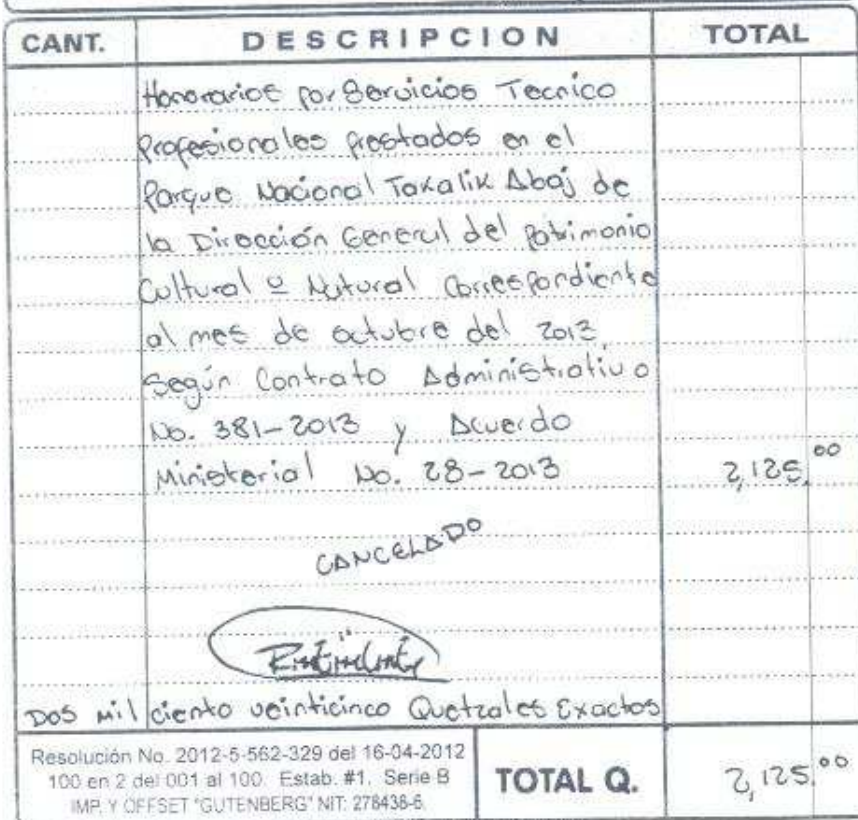 CANT. DESCRIPCION TOTAL
Honorarios por Servicios Tecnico
Profesionales prestados en el
Parque Nacional Takalik Abaj de
la Dirección General del Patrimonio
Cultural y Natural Correspondiente
al mes de octubre del 2013
Según Contrato Administrativo
No. 381-2013 y Acuerdo
Ministerial No. 28-2013 2,125.00
CANCELADO
Dos mil ciento veinticinco Quetzales Exactos
Resolución No. 2012-5-562-329 del 16-04-2012
100 en 2 del 001 al 100. Estab. #1. Serie B
IMP. Y OFFSET "GUTENBERG" NIT: 278438-6.
TOTAL Q. 2,125.00